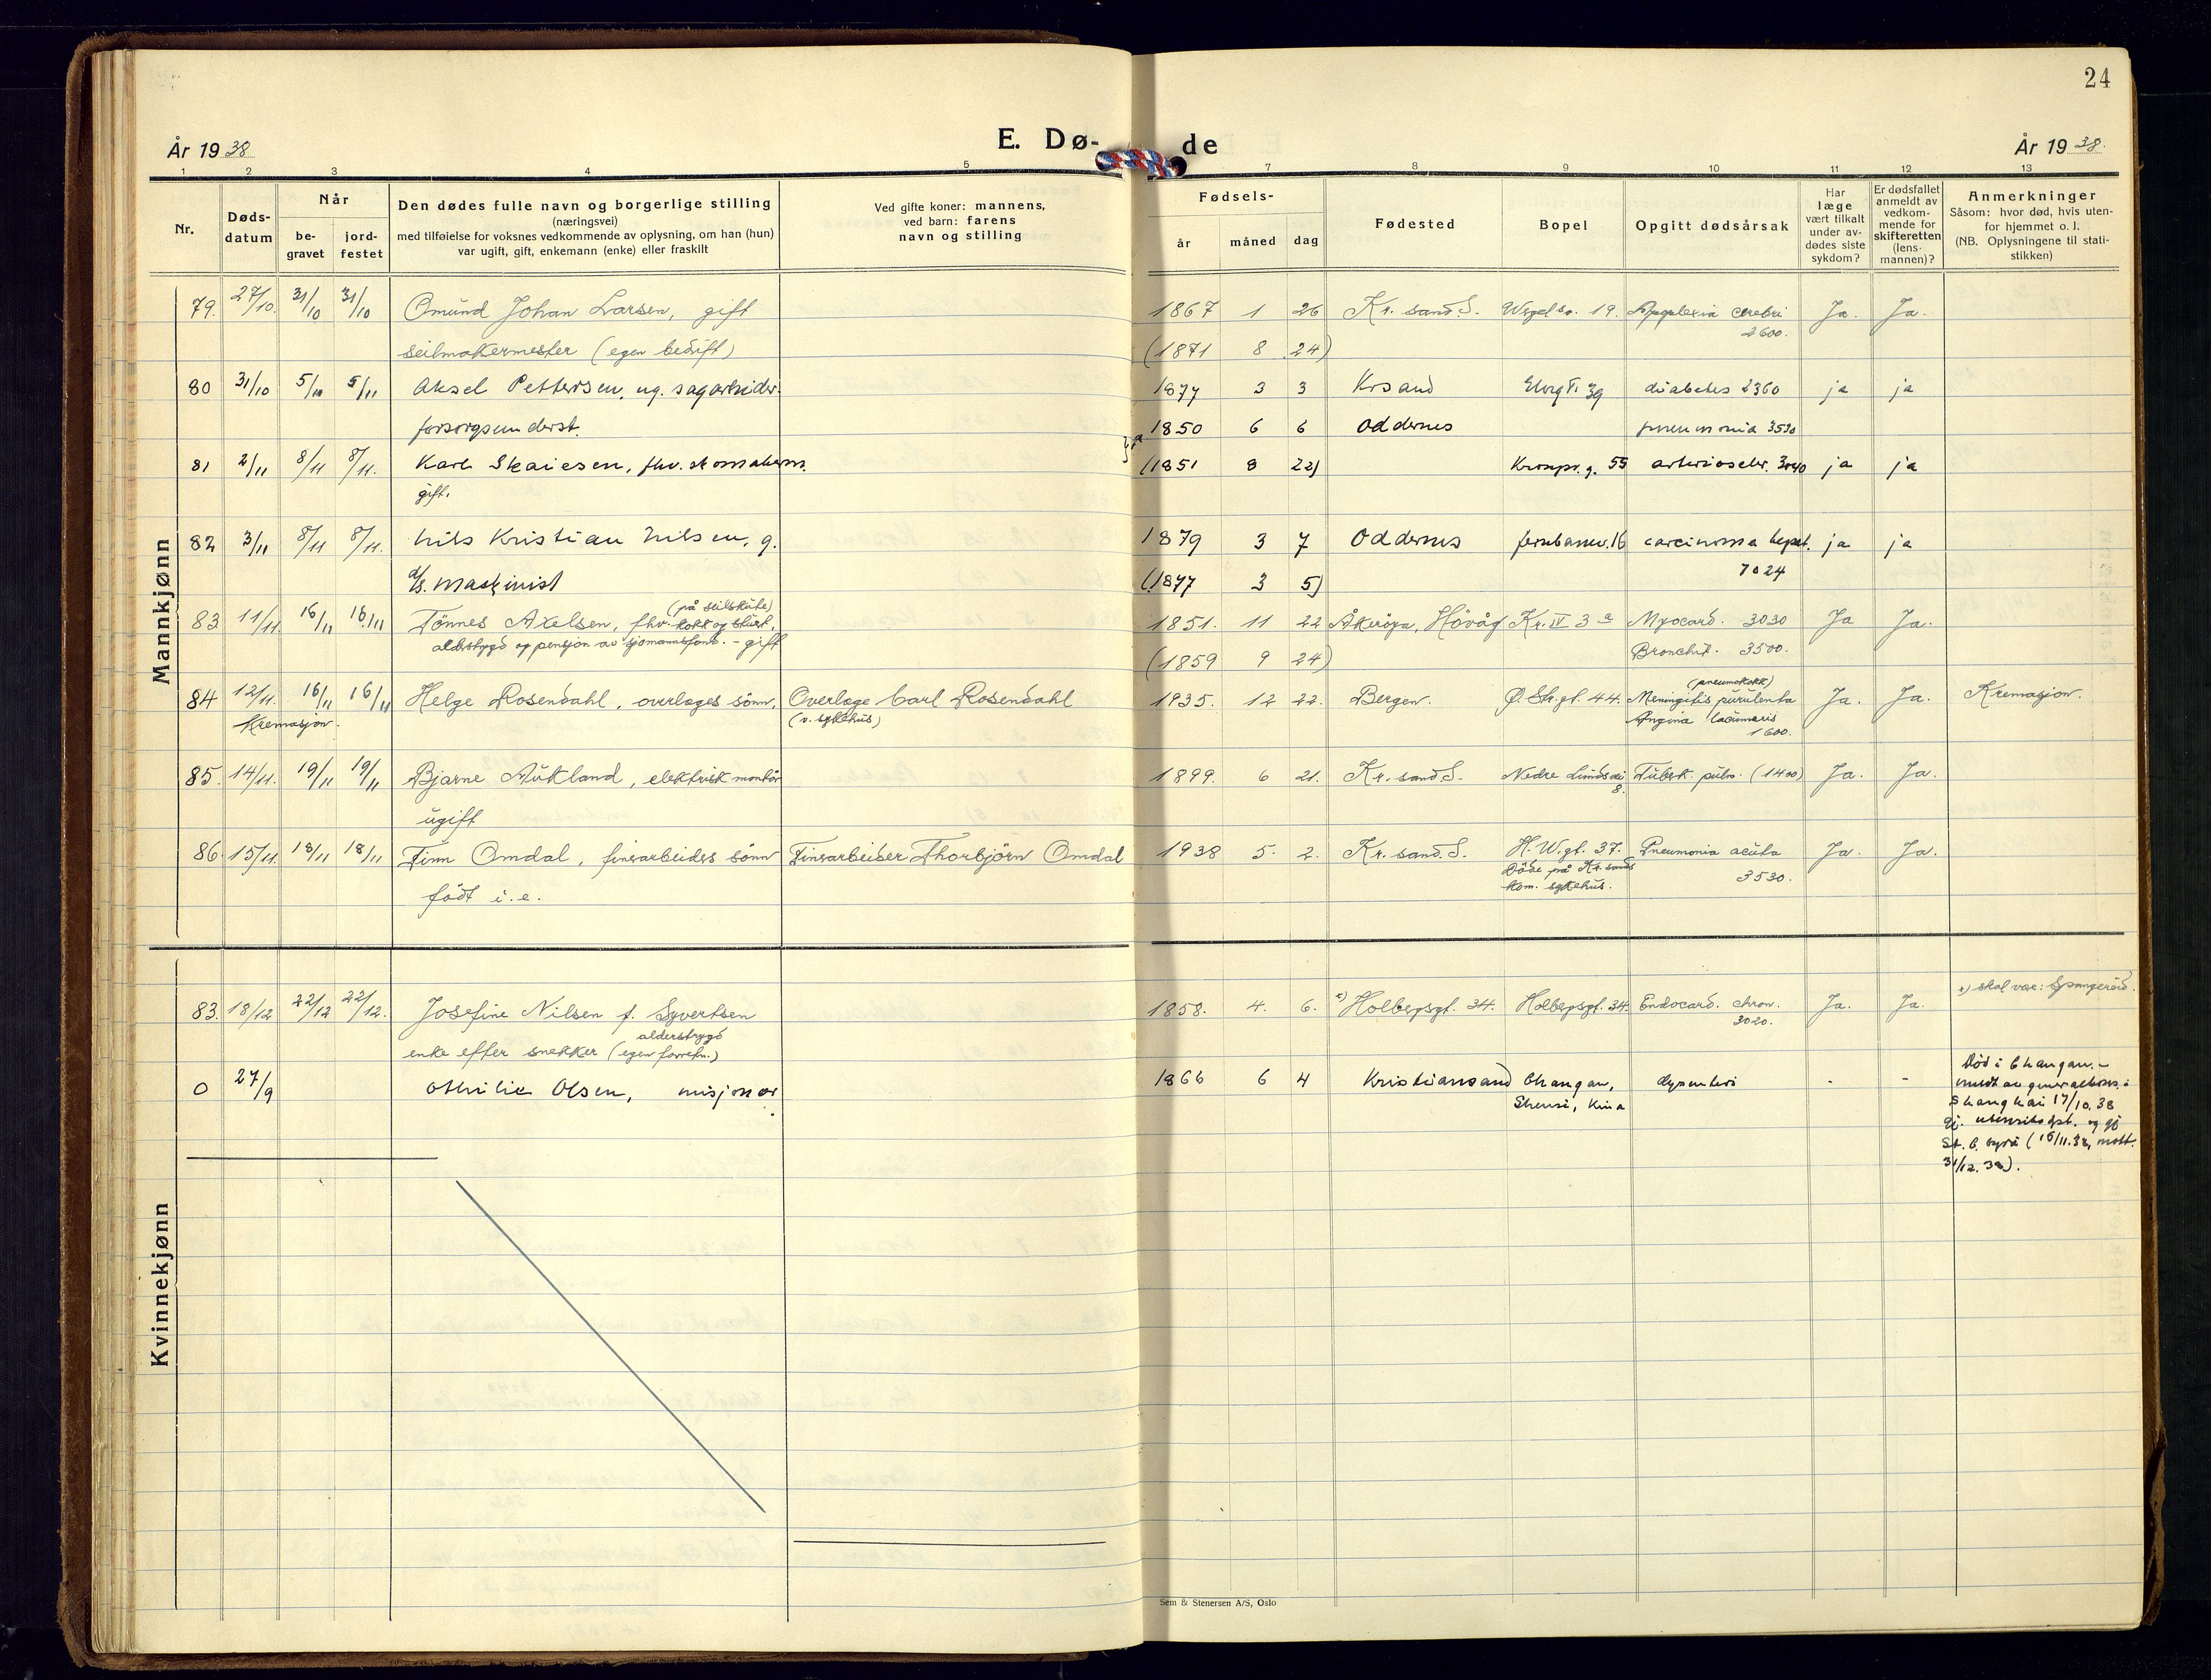 24
År 1938
E. Dø-
de
År 1938.
1 2 3 4 5 7 8 9 10 11 12 13
Nr.
Døds-
datum
Når
be-
gravet
jord-
festet
Den dødes fulle navn og borgerlige stilling
(næringsvei)
med tilføielse for voksnes vedkommende av oplysning, om han (hun)
var ugift, gift, enkemann (enke) eller fraskilt
Ved gifte koner: mannens,
ved barn: farens
navn og stilling
Fødsels-
år måned dag
Fødested
Bopel
Opgitt dødsårsak
Har
læge
vært tilkalt
under av-
dødes siste
sykdom?
Er dødsfallet
anmeldt av
vedkom-
mende for
skifteretten
(lens-
mannen)?
Anmerkninger
Såsom: hvor død, hvis uten-
for hjemmet o. l.
(NB. Oplysningene til stati-
stikken)
Mannkjønn
79. 27/10. 31/10 31/10 Omund Johan Larsen, gift 1867 1 26 Kr. sand S. 19. Apoplexia cerebri Ja. Ja.
2600.
seilmakermester (egen bedrift) (1871 8 24)
80 31/10 5/10 5/11 Aksel Pettersen, ug. sagarbeider. 1877 3 3 Krsand 39 diabetes 2360 ja ja
forsorgsunderst. 1850 6 6 Oddernes pneumonia 3530
81 2/11 8/11 8/11. Karl Skaiesen, fhv. skomakerm. (1851 8 22) Kronpr. g. 55 arterioscler. 3040 ja ja
gift.
82 3/11 8/11 8/11. Nils Kristian Nilsen, g. 1879 3 7 Oddernes Jernbanev. 16 carcinoma hepat. ja ja
7024
d/s. maskinist (1877 3 5)
(på seilskute)
83 11/11 16/11 16/11 Tönnes Axelsen, fhv. kokk og stuert, 1851. 11 22 Åkeröya, Hövåg Kr. IV 3 a Myocard. 3030 Ja Ja.
alderstrygd og pensjon av sjömannsfond. - gift Bronchit. 3500.
(1859 9 24)
84 12/11. 16/11 16/11 Helge Rosendahl, overlæges sönn, Overlæge Carl Rosendahl 1935. 12 22. Bergen. Ö. Str. gt. 44. (pneumokokk) Meningitis purulenta Ja. Ja. Kremasjon.
Kremasjon. (v. sykehus) Angina lacunaris
1600.
85. 14/11. 19/11 19/11 Bjarne Aukland, elektrisk montör 1899. 6 21. Kr. sand S. Nedre 8. Tuberk. pulm. (1400) Ja. Ja.
ugift
86. 15/11. 18/11 18/11 Finn Omdal, finerarbeiders sönn Finerarbeider Thorbjörn Omdal 1938 5. 2. Kr. sand. S. H. W. gt. 37. Pneumonia acuta Ja. Ja.
3530.
Döde på Kr. sands
kom. sykehus.
födt i. e.
Kvinnekjønn
83. 18/12 22/12 22/12. Josefine Nilsen f. Syvertsen 1858. 4. 6. x) Holbergsgt. 34. Holbergsgt. 34. Endocard. chron. Ja. Ja. x) skal være:
3020.
alderstrygd
enke efter snekker (egen forretn.)
0 27/9 Othilie Olsen, misjonær 1866 6 4 Kristiansand Changan, dysenteri - - Död i Changan. -
Shensi, Kina
meldt av generalkons. i
Shanghai 17/10. 38
gj. utenriksdpt. og gj.
St. C. byrå (16/11. 38, mott.
31/12. 38).
Sem & Stenersen A/S, Oslo